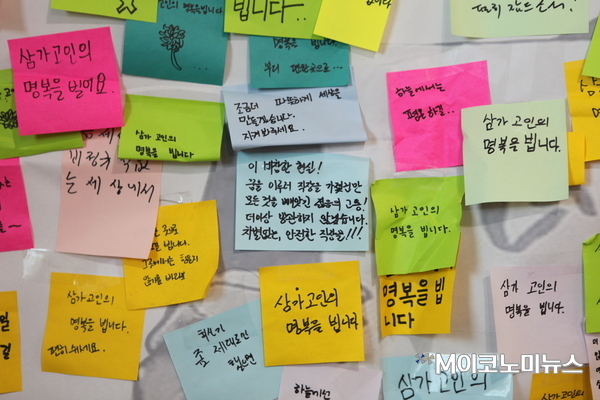 고인의
명복을 빕니다
빕니다~
삼가 고인의
명복을 빌어요.
명복을 빕니다
부디 편한곳으로...
삼가 고인의
명복을 빕니다
조금더 따뜻하게 세상을
만들겠습니다.
지켜봐주세요..
하늘에서는
평온하길..
삼가 고인의
명복을 빕니다.
세
비정규직 없
는 세상에서
이 비참한 현실!
꿈을 이루러 직장을 가졌지만
모든 것을 빼앗긴 젊음의 고통!
더이상 방관하지 않겠습니다.
차별없는, 안전한 직장을!!!
삼가 고인의
명복을 빕니다.
삼가 고인의
명복을 빕니다.
편히 쉬세요.
삼가 고인의
명복을 빕니다
명복을 빕
니다
삼가 고인의
명복을 빕니다.
좀 제대로만
됐으면
하늘에선
삼가 고인의
삼가 고인의
M이코노미뉴스